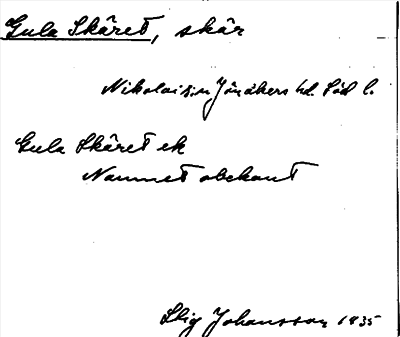 Gula Skäret, skär
Nikolai s:n Jönåkers hd. Söd l.
Gula Skäret ek
Namnet obekant
Stig Johansson 1935